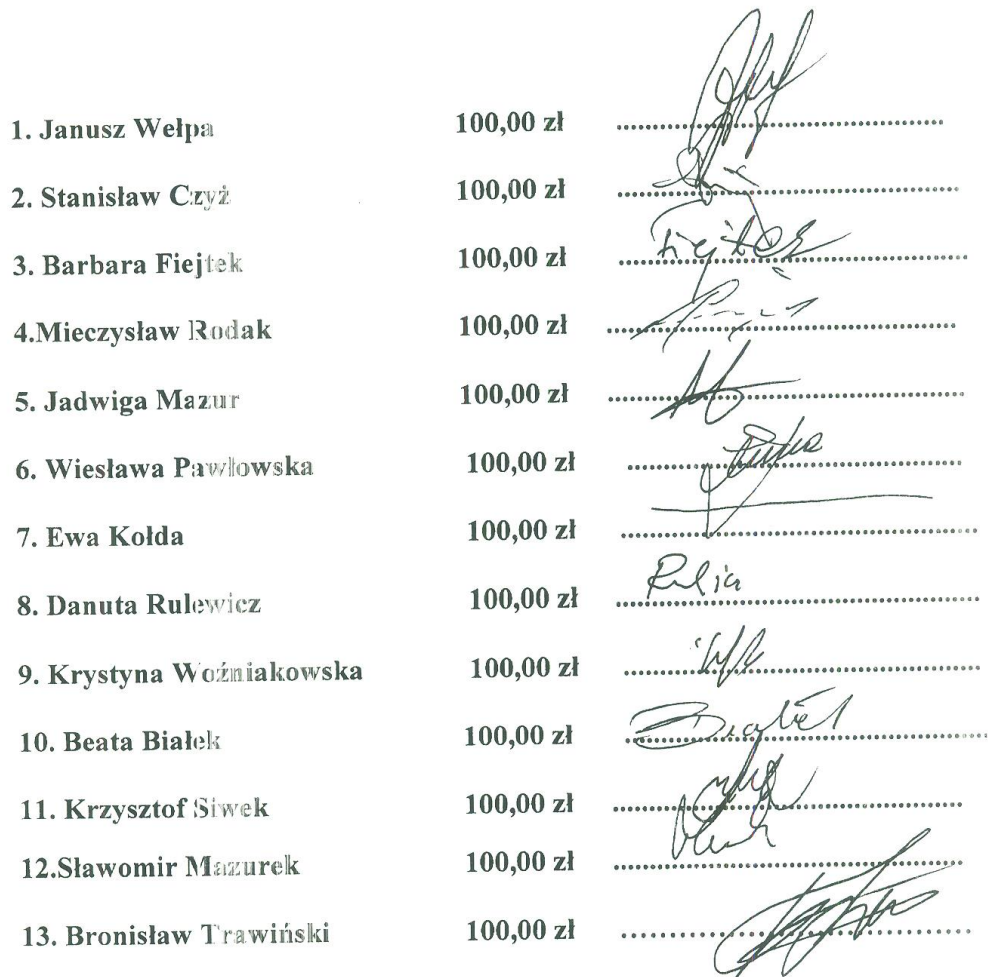 1. Janusz Wełpa 100,00 zł ................
2. Stanisław Czyż 100,00 zł ................
3. Barbara Fiejtek 100,00 zł ................ Fiejtek
4.Mieczysław Rodak 100,00 zł ................
5. Jadwiga Mazur 100,00 zł ................
6. Wiesława Pawłowska 100,00 zł ................
7. Ewa Kołda 100,00 zł ................
8. Danuta Rulewicz 100,00 zł ................
9. Krystyna Woźniakowska 100,00 zł ................
10. Beata Białek 100,00 zł ................ Białek
11. Krzysztof Siwek 100,00 zł ................
12.Sławomir Mazurek 100,00 zł ................
13. Bronisław Trawiński 100,00 zł ................